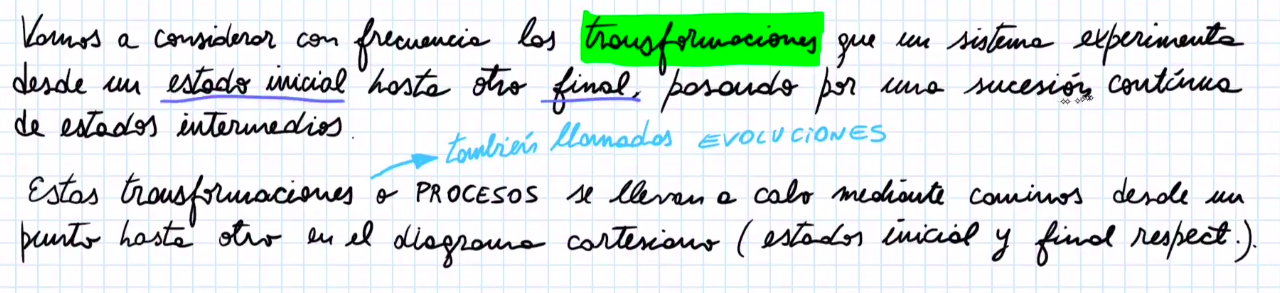 Vamos a considerar con frecuencia las transformaciones que un sistema experimenta
desde un estado inicial hasta otro final, pasando por una sucesión contínua
de estados intermedios.
también llamados EVOLUCIONES
Estas transformaciones o PROCESOS se llevan a cabo mediante caminos desde un
punto hasta otro en el diagrama cartesiano (estados inicial y final respect.).